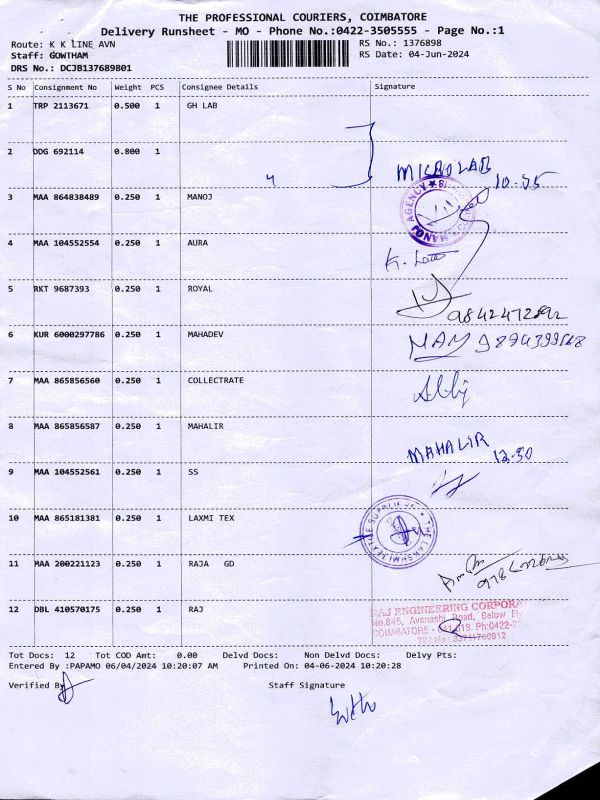 THE PROFESSIONAL COURIERS, COIMBATORE
Delivery Runsheet - MO - Phone No.:0422-3505555 - Page No.:1
Route: K K LINE AVN RS No.: 1376898
Staff: GOWTHAM RS Date: 04-Jun-2024
DRS No.: DCJB137689801
S No Consignment No Weight PCS Consignee Details Signature
1 TRP 2113671 0.500 1 GH LAB
2 DDG 692114 0.800 1
MICROLAB 10.05
3 MAA 864838489 0.250 1 MANOJ
MANOJ AGENCY
4 MAA 104552554 0.250 1 AURA
5 RKT 9687393 0.250 1 ROYAL
9842472892
6 KUR 6000297786 0.250 1 MAHADEV
7 MAA 865856560 0.250 1 COLLECTRATE
8 MAA 865856587 0.250 1 MAHALIR
MAHALIR 12.50
9 MAA 104552561 0.250 1 SS
10 MAA 865181381 0.250 1 LAXMI TEX
THE LAKSHMI TEXTILE SUPPLIERS
11 MAA 200221123 0.250 1 RAJA GD
12 DBL 410570175 0.250 1 RAJ
RAJ ENGINEERING CORPORA
No.845, Avanashi Road, Below Fly
COIMBATORE - Ph:0422-2
TIN No
Tot Docs: 12 Tot COD Amt: 0.00 Delvd Docs: Non Delvd Docs: Delvy Pts:
Entered By :PAPAMO 06/04/2024 10:20:07 AM Printed On: 04-06-2024 10:20:28
Verified By Staff Signature